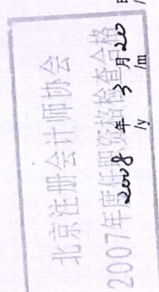 北京注册会计师协会
2007年度任职资格检查合格
2008 年 3 月 20 日
/y /m /